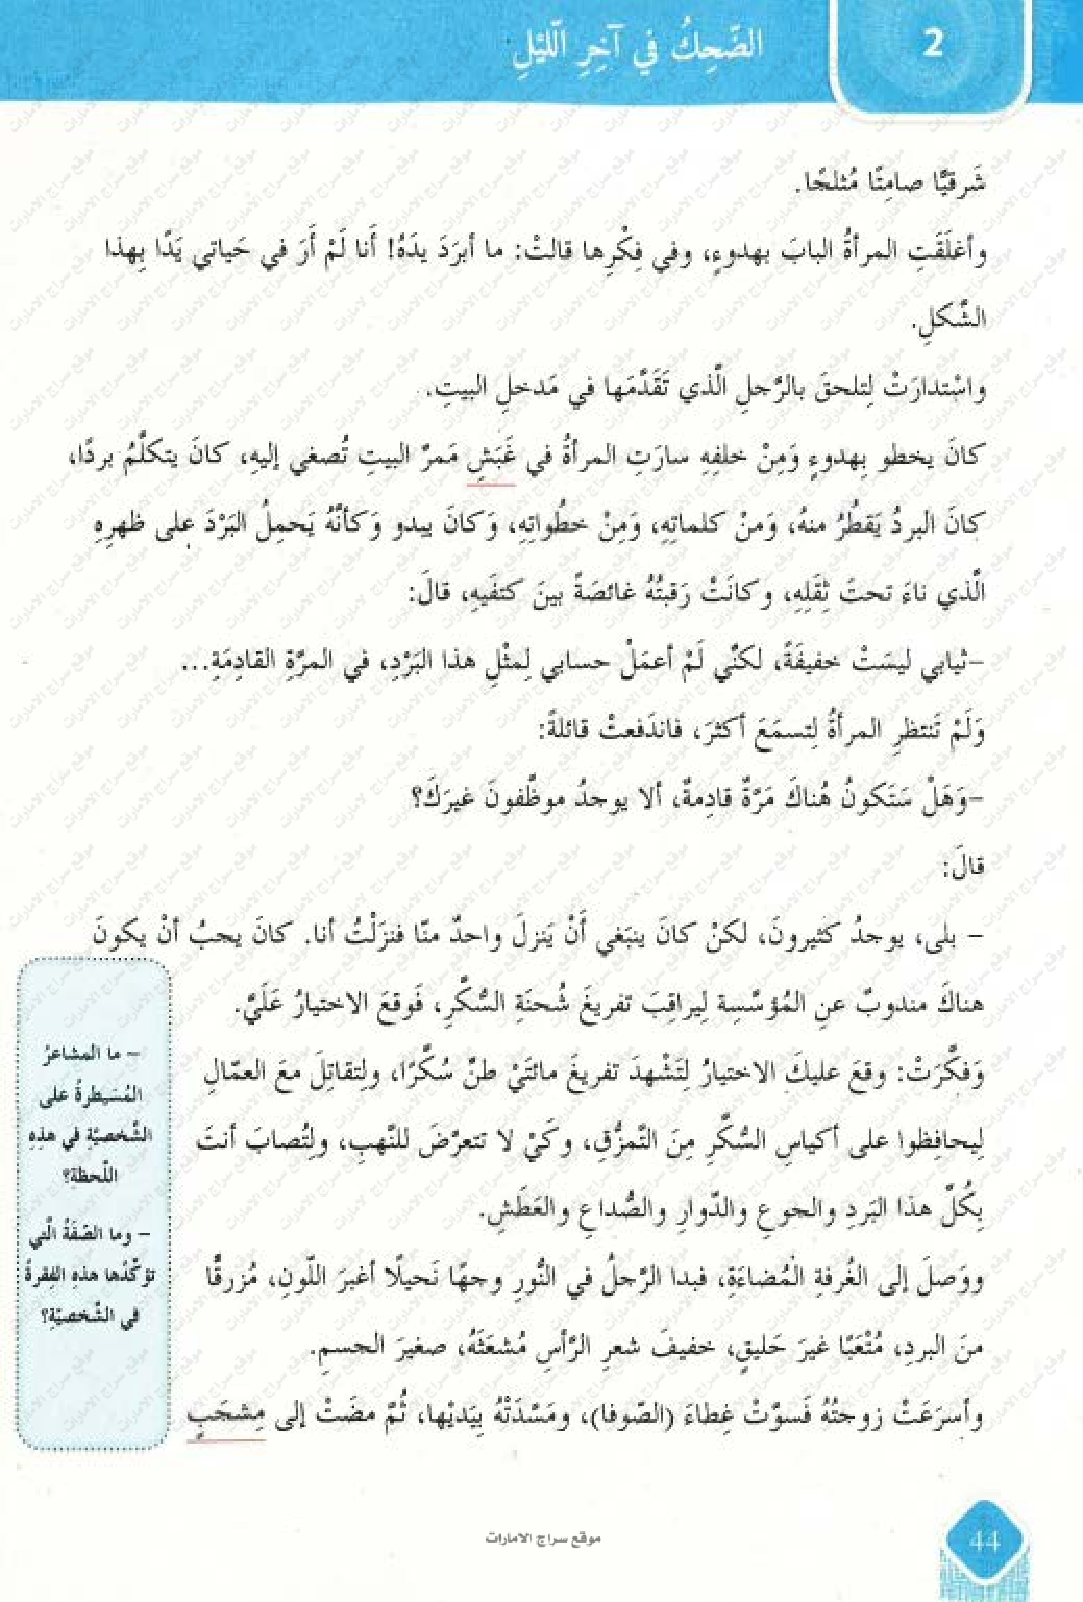 2
الضّحِكُ في آخِرِ الّليْلِ
شَرقيًّا صامِتًا مُثلجًا.
وأغلَقَتِ المرأةُ البابَ بهدوءٍ، وفي فِكْرِها قالتْ: ما أبرَدَ يدَهُ! أَنا لَمْ أَرَ في حَياتي يَدًا بِهذا
الشّكلِ.
واسْتدارَتْ لِتلحقَ بالرَّجلِ الّذي تَقَدَّمَها في مَدخلِ البيتِ.
كانَ يخطو بِهدوءٍ وَمِنْ خلفِهِ سارَتِ المرأةُ في غَبَشِ مَمرِّ البيتِ تُصغي إليهِ، كانَ يتكلَّمُ بردًا،
كانَ البردُ يَقطُرُ منهُ، وَمنْ كلماتِهِ، وَمِنْ خطُواتِهِ، وَكانَ يبدو وَكأنّهُ يَحمِلُ البَرْدَ على ظهرِهِ
الّذي ناءَ تحتَ ثِقَلِهِ، وكانَتْ رَقبتُهُ غائصَةً بينَ كتفَيهِ، قالَ:
–ثيابي ليسَتْ خفيفَةً، لكنّي لَمْ أعمَلْ حسابي لِمثْلِ هذا البَرْدِ، في المرَّةِ القادِمَةِ...
وَلَمْ تَنتظرِ المرأةُ لِتسمَعَ أكثرَ، فاندَفعتْ قائلةً:
–وَهَلْ سَتَكونُ هُناكَ مَرّةٌ قادِمةٌ، ألا يوجدُ موظّفونَ غيرَكَ؟
قالَ:
– بلى، يوجدُ كثيرونَ، لكنْ كانَ ينبَغي أَنْ يَنزلَ واحدٌ منّا فنزَلْتُ أنا. كانَ يحبُ أنْ يكونَ
هناكَ مندوبٌ عنِ المُؤسَّسِة لِيراقِبَ تفريغَ شُحنَةِ السُّكَّرِ، فَوقعَ الاختيارُ عَلَيَّ.
وَفكَّرَتْ: وقعَ عليكَ الاختيارُ لِتَشْهدَ تفريغَ مائتَيْ طنٍّ سُكَّرًا، ولِتقاتِلَ معَ العمّالِ
لِيحافِظوا على أكياسِ السُّكَّرِ مِنَ التَّمزُّقِ، وكَيْ لا تتعرَّضَ للنَّهبِ، ولِتُصابَ أنتَ
بِكُلِّ هذا البَردِ والجوعِ والدّوارِ والصُّداعِ والعَطَشِ.
ووَصلَ إلى الغُرفةِ المُضاءَةِ، فبدا الرَّجلُ في النُّورِ وجهًا نَحيلًا أغبرَ اللّونِ، مُزرقًّا
منَ البردِ، مُتْعَبًا غيرَ حَليقٍ، خفيفَ شعرِ الرَّأسِ مُشعَثَهُ، صغيرَ الجسمِ.
وأسرَعَتْ زوجتُهُ فَسوّتْ غِطاءَ (الصّوفا)، ومَسَّدَتْهُ بِيَديْها، ثُمَّ مضَتْ إلى مِشجَبٍ
– ما المشاعرُ
المُسَيطرةُ على
الشّخصيّةِ في هذِهِ
اللّحظةِ؟
– وما الصّفَةُ الّتي
تؤكّدُها هذه الفِقرةُ
في الشّخصيّةِ؟
موقع سراج الامارات
44